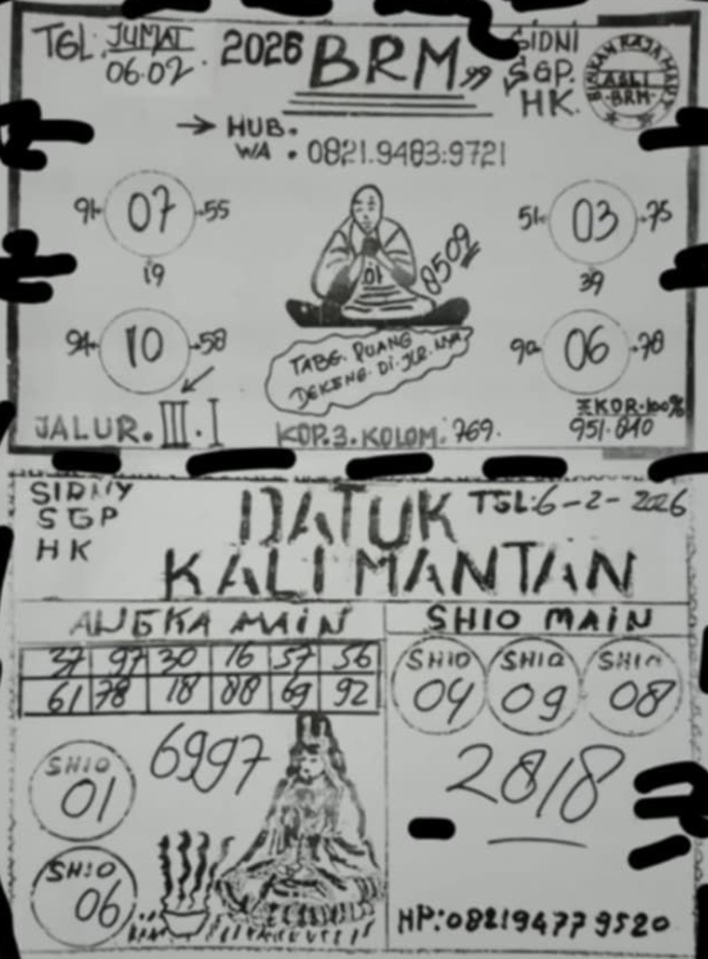 TGL: JUMAT
06-02.
2026 BRM"
SIDNI
SGP.
HK.
BINAAN RAJA
ASLI
BRM
→ HUB.
WA : 0821.9483.9721
91 07 55
19
51 03 75
39
01
8509
94 10 58
90 06 78
TABG. PUANG
DEKENG. DI. JLR. NYA
JALUR. III. I
KOP. 3. KOLOM. 769.
EKOR. 100%
951. 840
SIDNEY
SGP
HK
DATUK
KALIMANTAN
TGL: 6-2-2026
ANGKA MAIN
SHIO MAIN
37 97 30 16 57 56
61 78 18 88 69 92
SHIO 04
SHIO 09
SHIO 08
SHIO 01
6997
2818
SHIO 06
HP: 082194779520